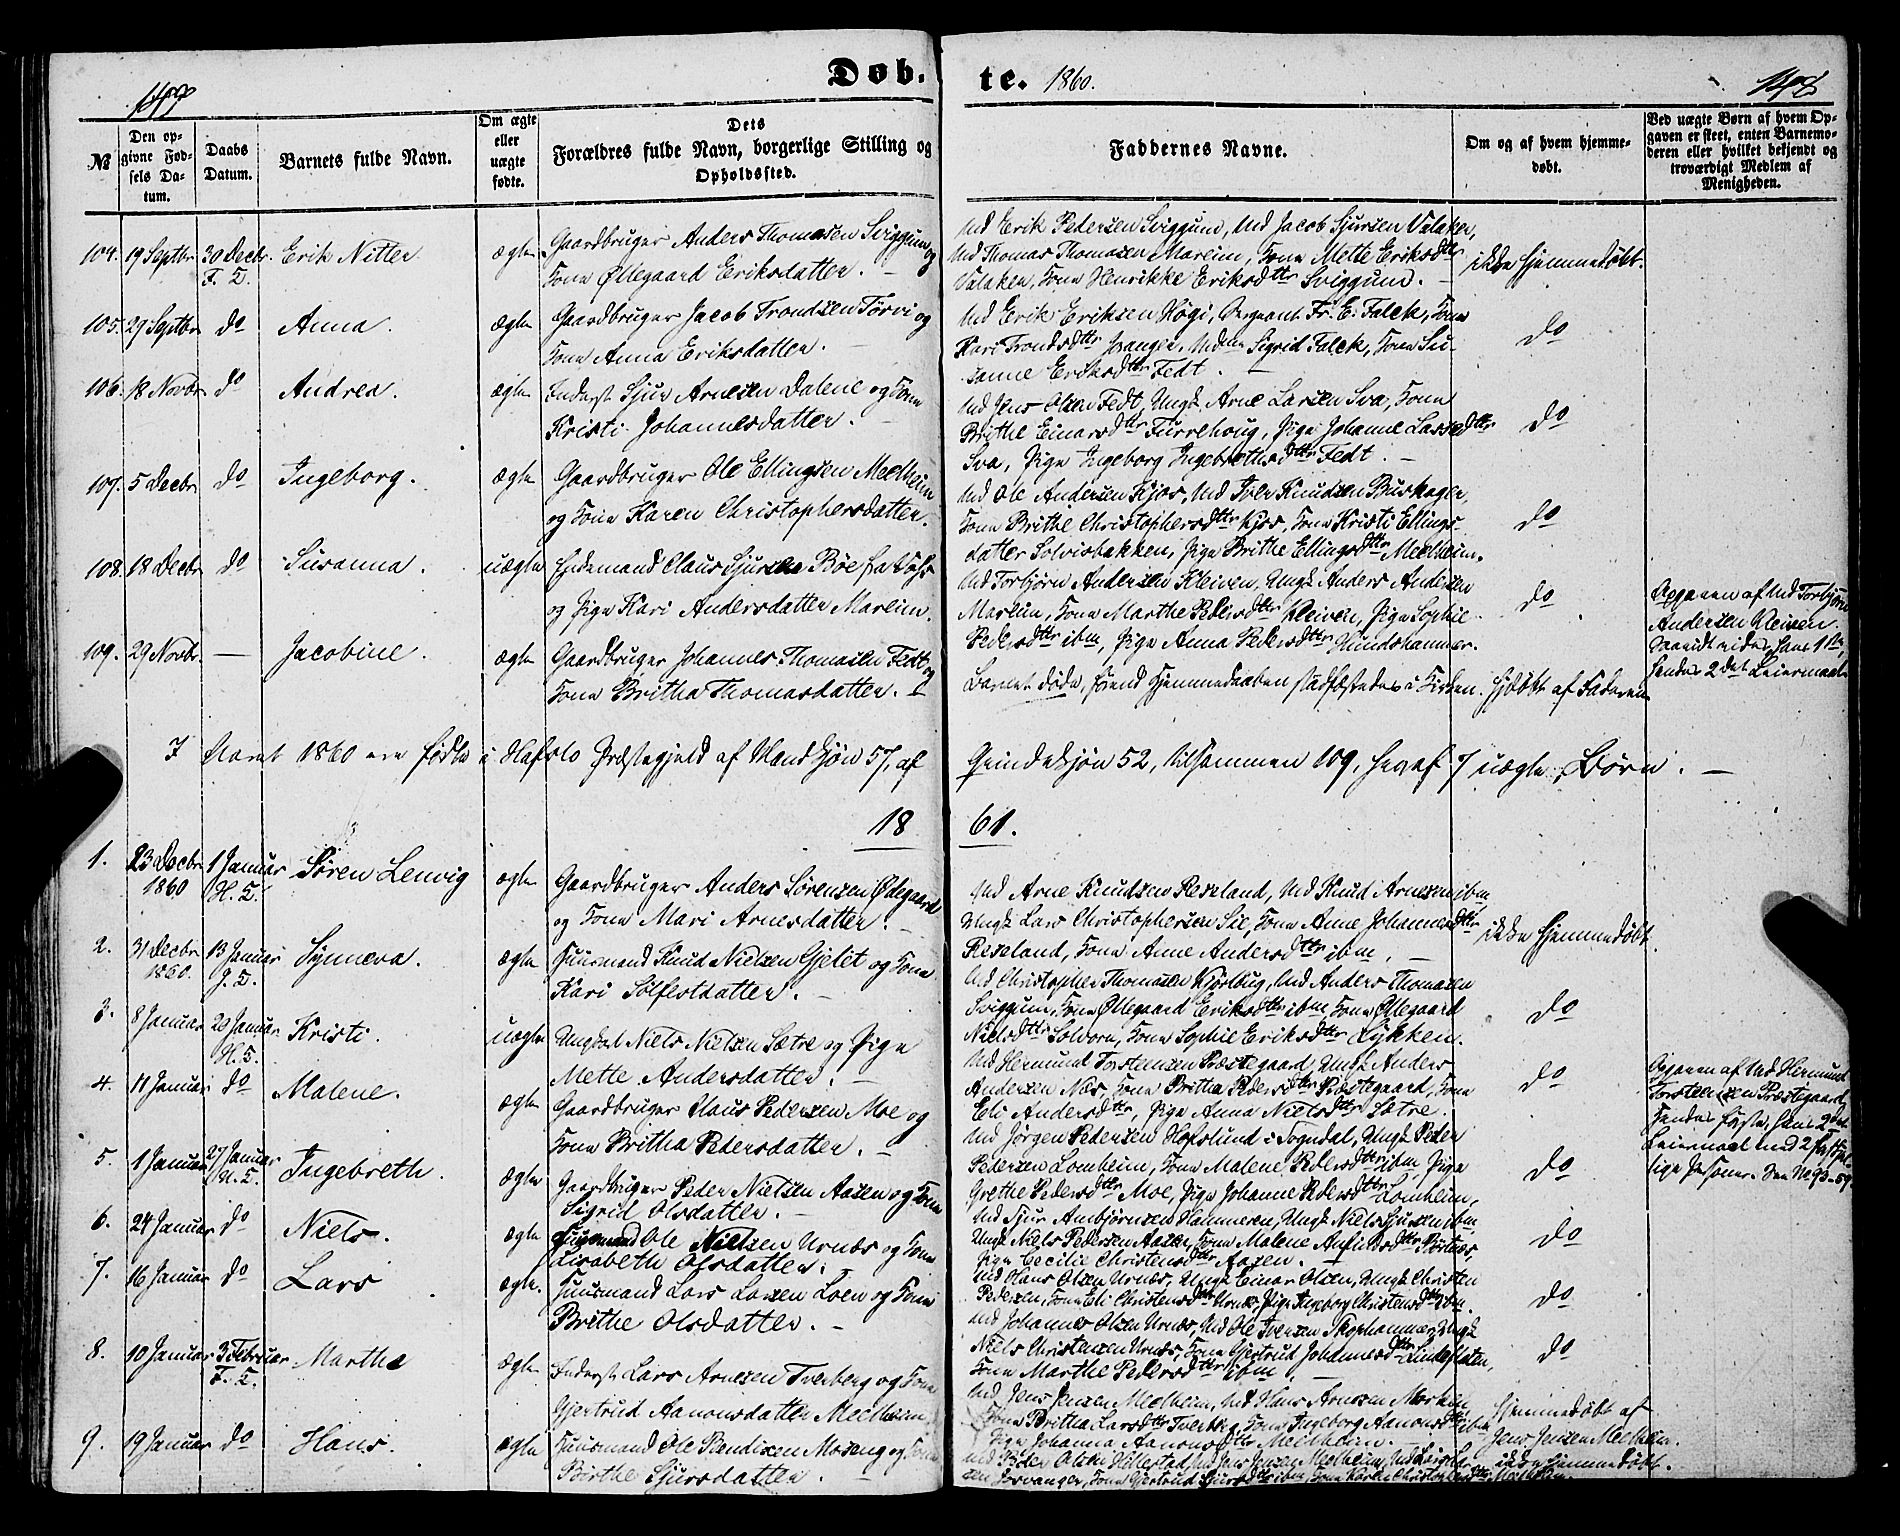 Døb- te. 1860.
№
Den opgivne Fødsels Datum.
Daabs Datum.
Barnets fulde Navn.
Om ægte eller uægte fødte.
Dets Forældres fulde Navn, borgerlige Stilling og Opholdssted.
Faddernes Navne.
Om og af hvem hjemmedøbt.
Ved uægte Børn af hvem Opgaven er skeet, enten Barnemoderen eller hvilket bekjendt og troværdigt Medlem af Menigheden.
104. 19 Septbr 30 Decbr. Erik Nitter ægte Gaardbruger Anders Thomasen Sviggum og
F. T. Kone Øllegaard Eriksdatter. —
Md Erik Pedersen Sviggum, Md Jacob Sjursen Valaker,
Md Thomas Thomasen Mareim, Kone Mette Eriksdttr
Valaker, Kone Henrikke Eriksdttr Sviggum. —
ikke hjemmedøbt.
105. 29 Septbr do Anna. ægte Gaardbruger Jacob Trondsen Tørvi og
Kone Anna Eriksdatter. —
Md Erik Eriksen Høgi, Sergeant Fr. E. Falck, Kone
Kari Trondsdttr, Mdm Sigrid Falck, Kone Su-
sanne Eriksdttr Fedt. —
do
106. 18 Novbr do Andrea ægte Inderst Sjur Arnesen Dalene og Kone
Kristi Johannesdatter. —
Md Jens Olsen Fedt, Ungk. Arne Larsen Sva, Kone
Brithe Einarsdttr Furrehoug, Pige Johanne Lassedttr
Sva, Pige Ingeborg Ingebrethsdttr Fedt. —
do
107. 5 Decbr do Ingeborg. ægte Gaardbruger Ole Ellingsen Meelheim
og Kone Karen Christophersdatter.
Md Ole Andersen Kjos, Md Iver Knudsen Buskager,
Kone Brithe Christophersdttr Kjos, Kone Kristi Ellings-
datter Solvisbakken, Pige Brithe Ellingsdttr Meelheim.
do
108. 18 Decbr do Susanna. uægte Enkemand Claus Sjursen Bøe
og Pige Kari Andersdatter Mareim.
Md Torbjørn Andersen Kleiven, Ungk Anders Andersen
Mareim, Kone Marthe Pedersdttr Kleiven, Pige Sophie
Pedersdttr ibm, Pige Anna Pedersdttr Hundshammer.
do
Opgaven af Md Torbjørn
Andersen Kleiven.
hans 1ste,
hendes 2det Leiermaal
109. 29 Novbr. — Jacobine. ægte Gaardbruger Johannes Thomasen Fedt og
Kone Britha Thomasdatter. —
Barnet døde, førend Hjemmedaaben stadfæstedes i Kirken. Hjdøbt af Faderen
I Aaret 1860 ere fødte i Hafslo Præstegjeld af Mandkjøn 57, af Qvindekjøn 52, tilsammen 109, heraf 7 uægte Børn. —
18 61.
1. 23 Decbr 1 Januar Søren Lenvig ægte Gaardbruger Anders Sørensen Ølegaard
1860 H. T. og Kone Mari Arnesdatter. —
Md Arne Knudsen Reseland, Md Knud Arnesen ibm,
Ungk Lars Christophersen Sie, Kone Anne Johannesdttr
Reseland, Kone Anne Andersdttr ibm. —
ikke hjemmedøbt.
2. 31 Decbr 13 Januar Synneva. ægte Huusmand Knud Nielsen Gjelet og Kone
1860. J. T. Kari Solfestdatter. —
Md Christopher Thomasen Kjørlaug, Md Anders Thomasen
Sviggum, Kone Øllegaard Eriksdttr ibm, Kone Øllegaard
Nielsdttr Solvorn, Kone Sophie Eriksdttr Lykken.
do
3. 8 Januar 20 Januar Kristi. uægte Ungkal Niels Nielsen Sætre og Pige
H. T. Mette Andersdatter. —
Md Hermund Torstensen Præstegaard, Ungk Anders
Andersen Næs, Kone Britha Pedersdttr Præstegaard, Kone
Eli Andersdttr, Pige Anna Nielsdttr Sætre.
do
Opgaven af Md Hermund
Torstensen Præstegaard,
hendes første, hans 2det
Leiermaal
4. 11 Januar do Malene. ægte Gaardbruger Claus Pedersen Moe og
Kone Britha Pedersdatter. —
Md Jørgen Pedersen Hofslund i Sogndal, Ungk Peder
Pedersen Lomheim, Kone Malene Pedersdttr ibm, Pige
Grethe Pedersdttr Moe, Pige Johanne Pedersdttr Lomheim,
do
5. 1 Januar 27 Januar Ingebreth. ægte Gaardbruger Peder Nielsen Aasen og Kone
H. T. Sigrid Olsdatter. —
Md Sjur Ambjørnsen Hammeren, Ungk Niels Sjursen ibm,
Ungk Niels Pedersen Aasen, Kone Malene Anfindsdttr,
Pige Cecilie Christensdttr Aasen. —
do
6. 24 Januar do Niels. ægte Huusmand Ole Nielsen Urnæs og Kone
Lisabeth Olsdatter.
Md Hans Olsen Urnæs, Ungk Einar Olsen, Ungk Christen
Pedersen, Kone Eli Christensdttr Urnæs, Pige Ingeborg Christensdttr ibm.
do
7. 16 Januar do Lars. ægte. Huusmand Lars Larsen Loen og Kone
Brithe Olsdatter. —
Md Johannes Olsen Urnæs, Md Ole Iversen Skophammer, Ungk
Niels Christensen Urnæs, Kone Gjertrud Johannesdttr Lindesloten,
Kone Marthe Pedersdttr ibm. —
do
8. 10 Januar 3 Februar Marthe ægte Inderst Lars Arnesen Tverberg og Kone
F. T. Gjertrud Aanonsdatter Meelheim.
Md Jens Jensen Meelheim, Md Hans Arnesen
Kone Britha Larsdttr Tverberg, Kone Ingeborg Aanonsdttr ibm
Pige Johanna Aanonsdttr Meelheim.
Hjemmedøbt af
Jens Jensen Meelheim.
9. 19 Januar do Hans. ægte Huusmand Ole Bendixen Moseng og Kone
Birthe Sjursdatter. —
ikke hjemmedøbt.